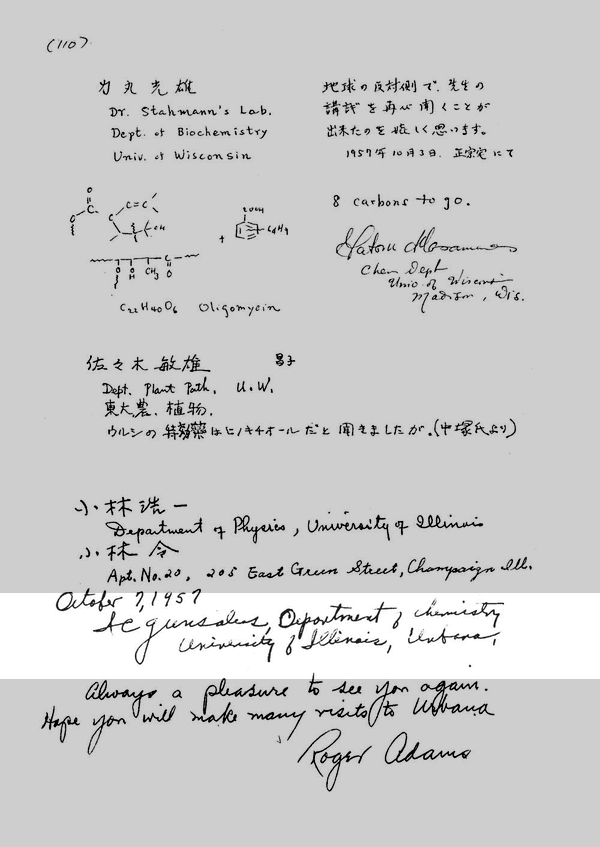 (110)
力丸光雄
Dr. Stahmann's Lab.
Dept. of Biochemistry
Univ. of Wisconsin
地球の反対側で、先生の
講談を再び聞くことが
出来たのを嬉しく思います。
1957年10月3日. 正宗宅にて
8 carbons to go.
Satoru Masamune
Chem Dept
Univ. of Wisconsin
Madison, Wis.
C22H40O6 Oligomycin
佐々木敏雄 昌子
Dept. Plant Path. U.W.
東大農. 植物.
ウルシの特効薬はヒノキチオールだと聞きましたが.(中塚氏より)
小林浩一
Department of Physics, University of Illinois
小林令
Apt. No. 20, 205 East Green Street, Champaign Ill.
October 7, 1957
I C Gunsalus, Department of Chemistry
University of Illinois, Urbana,
Always a pleasure to see you again.
Hope you will make many visits to Urbana
Roger Adams